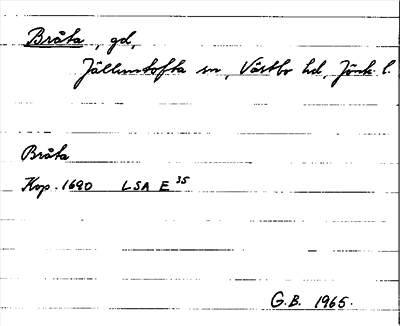 Bråta, gd,
Jälluntofta sn, Västbo hd, Jönk. l.
Bråta
Kop. 1690 LSA E 35
G.B. 1965.